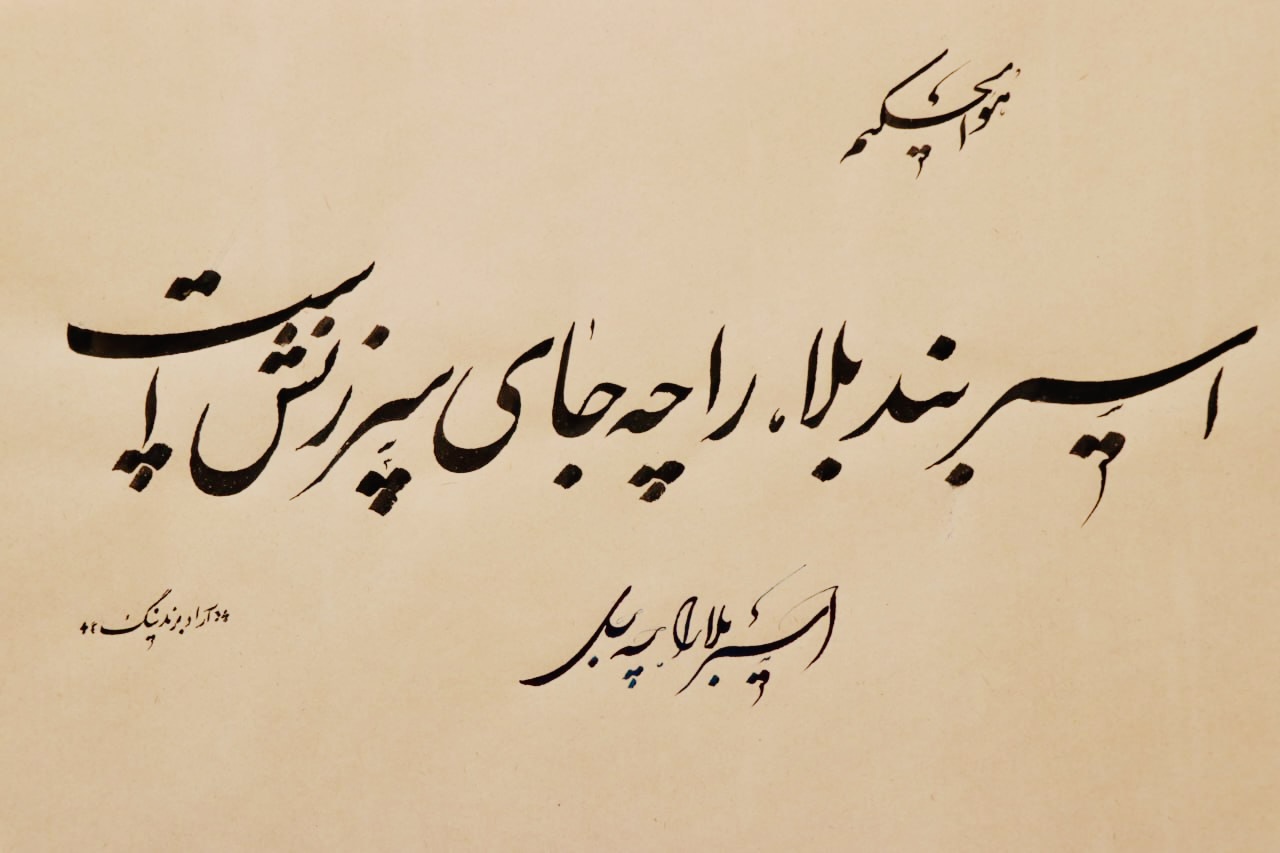 هوالحکیم
اسیر بند بلا را چه جای سرزنش است
اسیر بلا را چه
آراد برندینگ